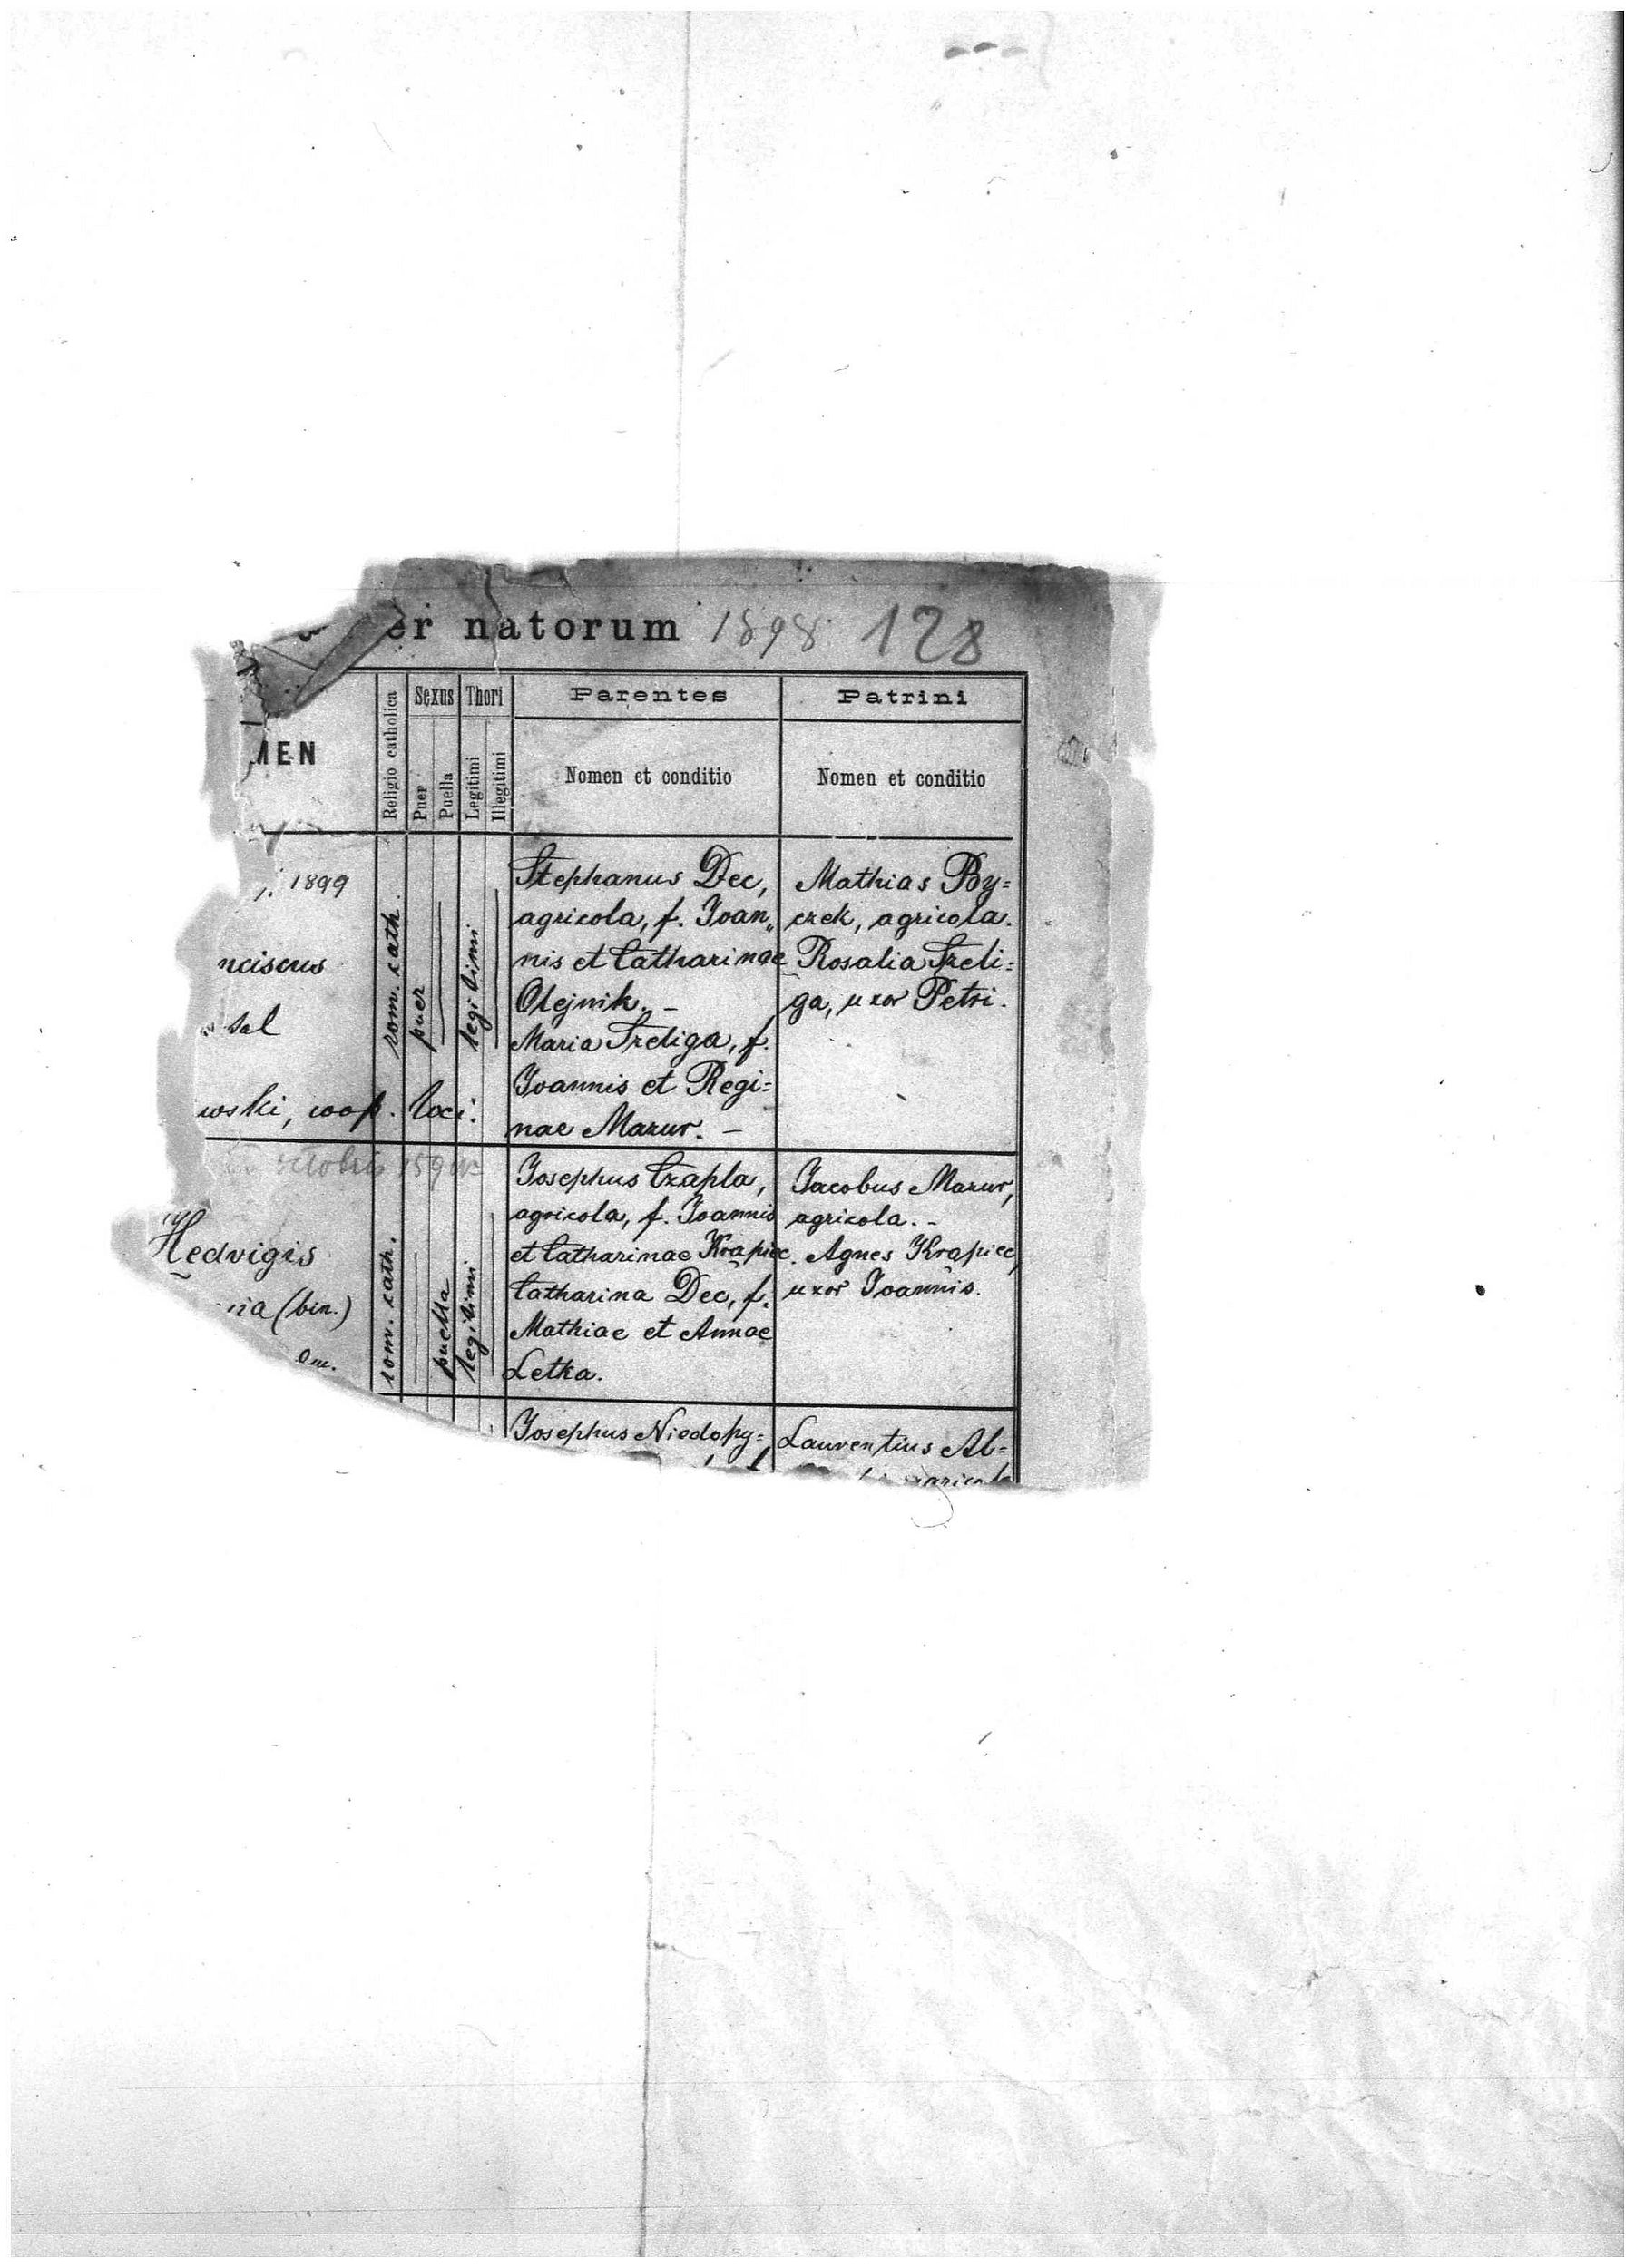 er natorum 1898 128
MEN
Religio catholica
Sexus
Puer
Puella
Thori
Legitimi
Illegitimi
Parentes
Nomen et conditio
Patrini
Nomen et conditio
1899
nciscus
sal
wski, coop. loci.
rom. cath.
puer
legitimi
Stephanus Dec,
agricola, f. Joan„
nis et Catharinae
Olejnik. –
Maria Treliga, f.
Joannis et Regi=
nae Mazur. –
Mathias By=
czek, agricola.
Rosalia Treli=
ga, uxor Petri.
Hedvigis
ria (bin.)
rom. cath.
puella
legitimi
Josephus Czapla,
agricola, f. Joannis
et Catharinae Krąpiec.
Catharina Dec, f.
Mathiae et Annae
Letka.
Jacobus Mazur,
agricola. -
Agnes Krąpiec,
uxor Joannis.
Josephus Niedopy=
Laurentius Al=